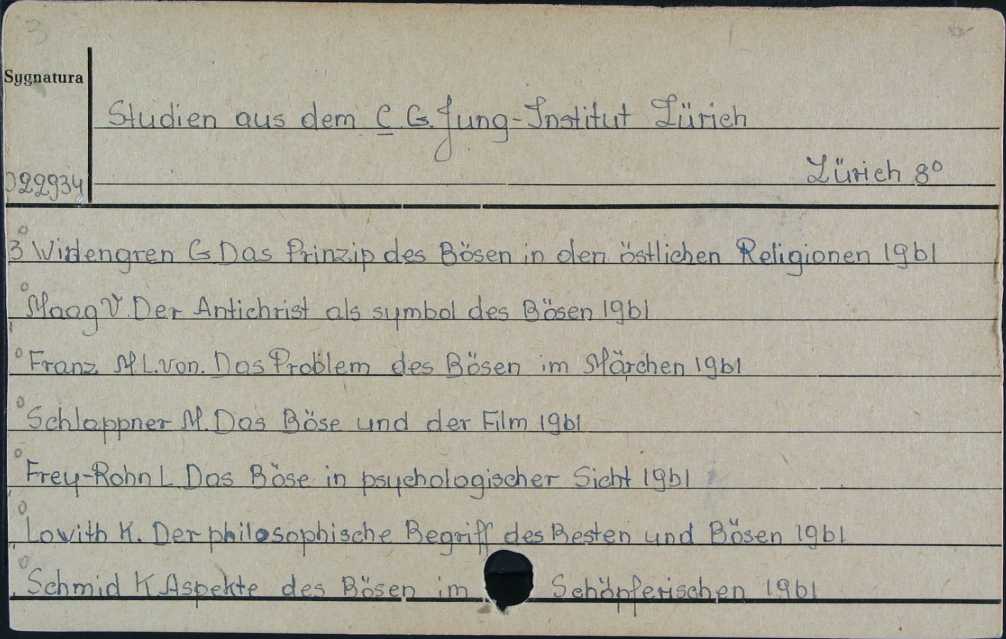 3
Sygnatura
Studien aus dem C. G. Jung-Institut Zürich
Zürich 8°
022934
3 Widengren G Das Prinzip des Bösen in den östlichen Religionen 1961
Maag V. Der Antichrist als symbol des Bösen 1961
Franz M L. von. Das Problem des Bösen im Märchen 1961
Schlappner M. Das Böse und der Film 1961
Frey-Rohn L. Das Böse in psychologischer Sicht 1961
Lowith K. Der philosophische Begriff des Besten und Bösen 1961
Schmid K Aspekte des Bösen im Schöpferischen 1961